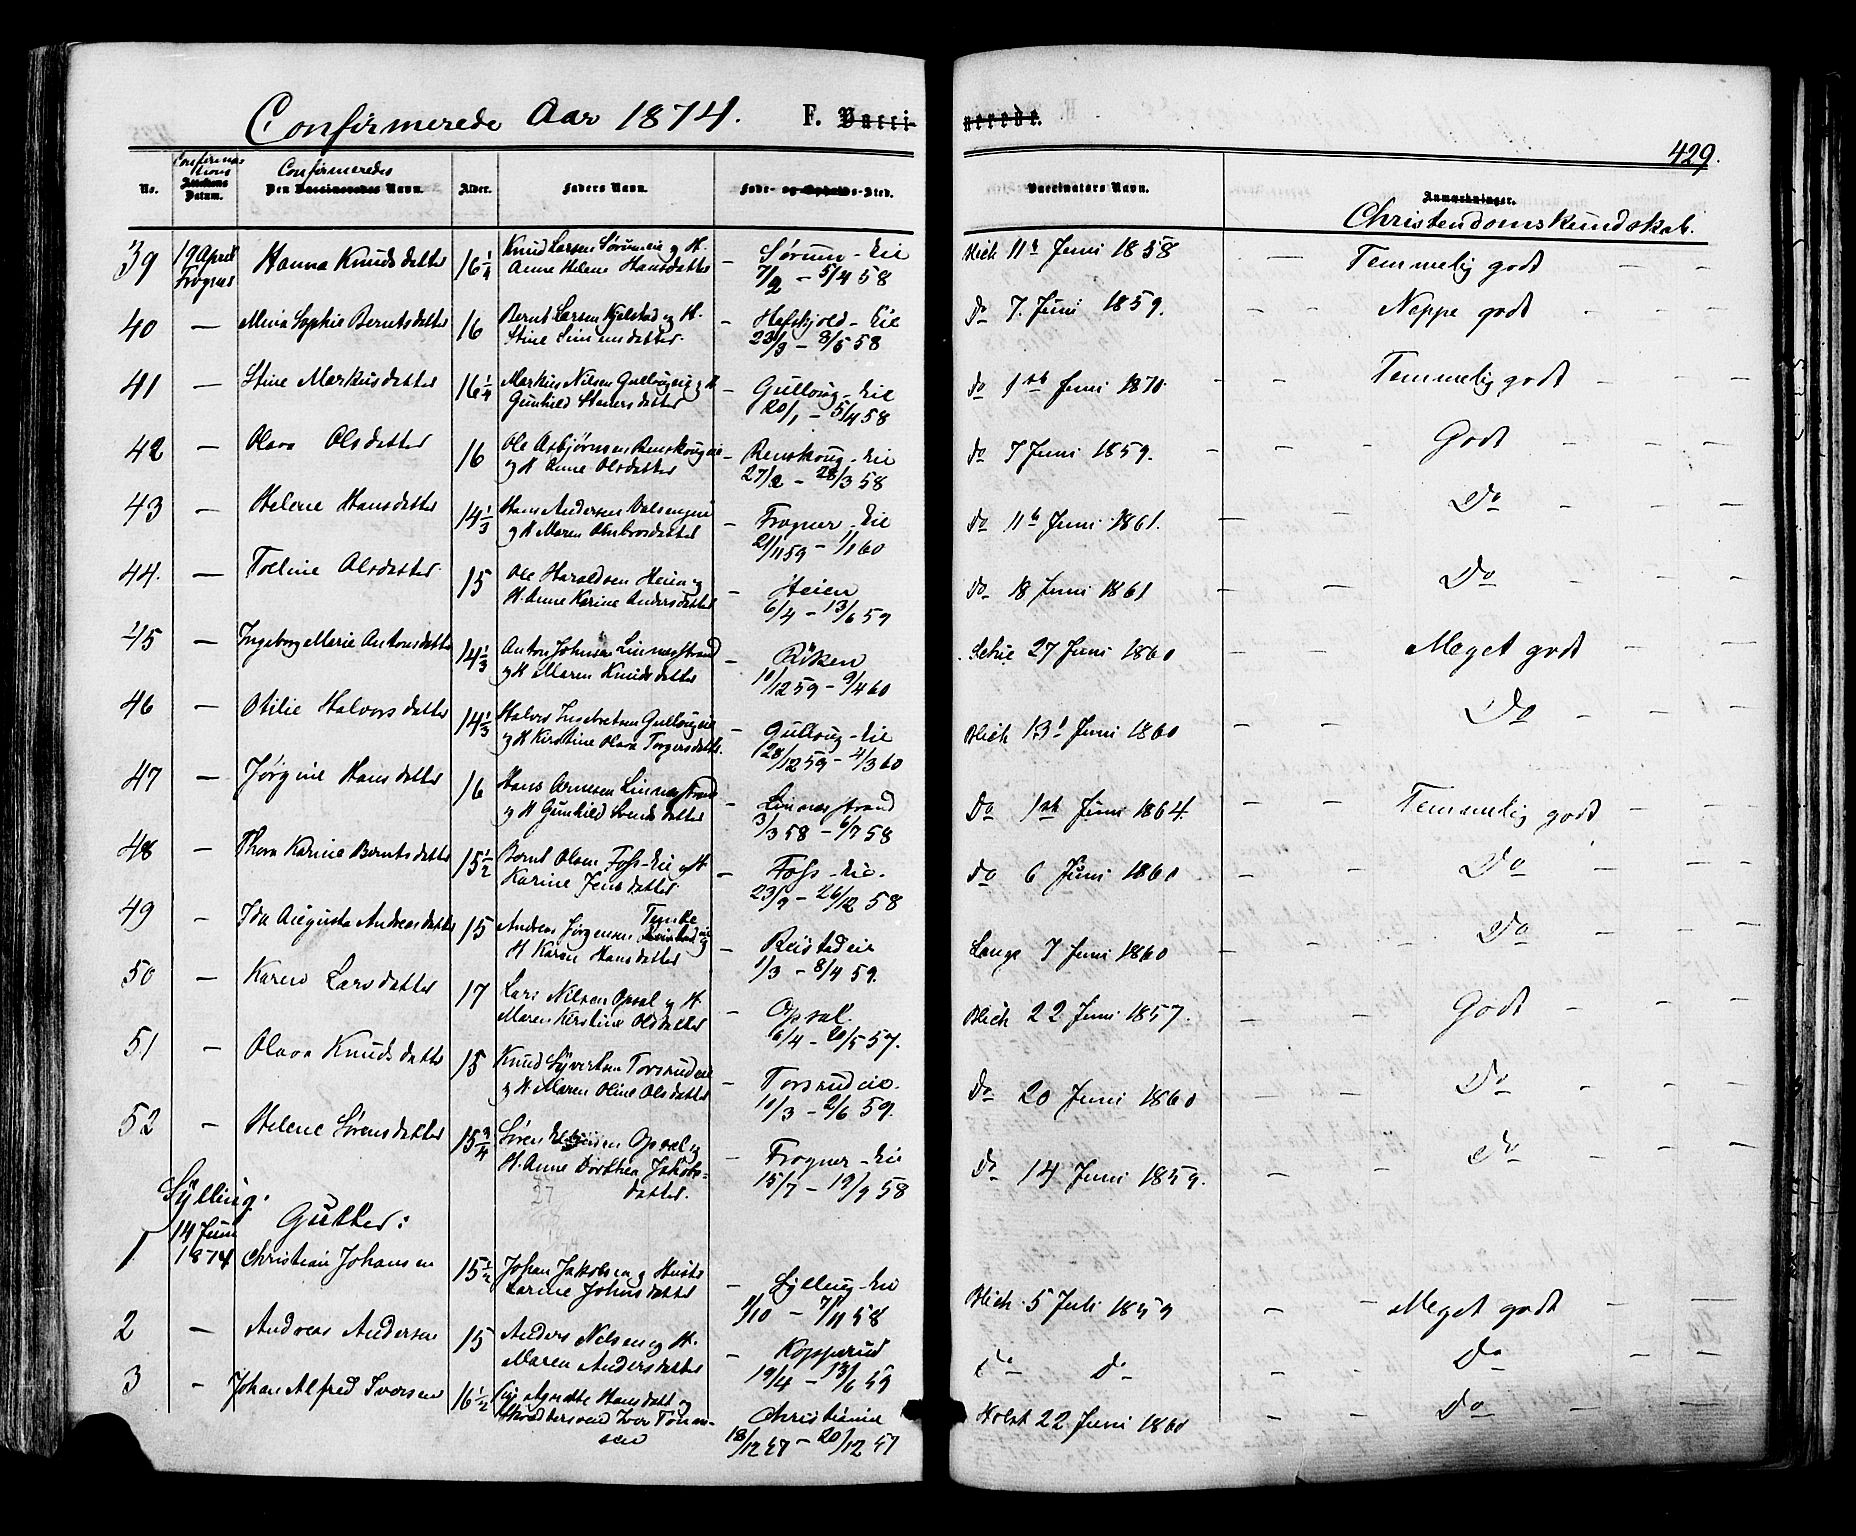 Confirmerede Aar 1874. F. Vacci-nerede.
429.
No. Confirmations Datum. Confirmeredes Den Vaccineredes Navn. Alder. Faders Navn. Føde- og Opholds-Sted. Vaccinators Navn. Anmærkninger.
Christendomskundskab.
39 19 April Hanna Knudsdatter 16 1/4 Knud Larsen Sørumeie og H. — Sørum-Eie Blich 11te Juni 1858 — Temmelig godt
Frogner Anne Helene Hansdatter 7/2 – 5/4 58
40 — Mina Sophie Berntsdatter 16 Bernt Larsen Kjelstad og H. — Høfskjold-Eie Do 7. Juni 1859. Neppe godt
Stine Simensdatter. 23/3 – 8/5 58
41 — Stine Markusdatter 16 1/4 Markus Nilsen Gullougeie og H — Gulloug-Eie Do 1ste Juni 1870. Temmelig godt
Gunhild Steners datter 20/1 – 5/4 58
42 — Olava Olsdatter 16 Ole Asbjørnsen Renskougeie — Renskoug-Eie Do 7 Juni 1859. Godt
og H Anne Olsdatter 27/2 – 28/3 58
43 — Helene Hansdatter 14 1/3 Hans Andersen — Frogner-Eie Do 11te Juni 1861. Do
og H Maren 21/11 59 – 1/1 60
44. — Toline Olsdatter 15 Ole Haraldsen Heien og — Heien Do 18 Juni 1861 Do
H. Anne Karine Andersdatter 6/4 – 13/6 59
45 — Ingeborg Marie Antonsdatter 14 1/3 Anton Johnsen Linnesstrand — Röken 27 Juni 1860 Meget godt
og H Maren Knudsdatter 10/12 59 – 9/4 60
46 — Otilie Halvorsdatter 14 1/3 Halvor Ingebretsen Gullougeie — Gulloug-Eie Blich 13de Juni 1860 Do
og H Kirstine Olava Torgersdatter. 28/12 59 – 4/3 60
47 — Jørgine Hansdatter 16 Hans Arnesen Linnesstrand — Linnesstrand Do 1ste Juni 1864. Temmelig godt
og H Gunhild Svendsdatter 3/3 58 – 6/7 58
48 — Thora Karine Berntsdatter 15 1/2 Bernt Olsen Foss-Eie og H. — Foss-Eie. Do 6 Juni 1860 Do
Karine Jensdatter 23/9 – 26/12 58
49 — Ida Augusta Andreasdatter 15 Andreas Jørgensen og — Reistadeie Lange 7 Juni 1860 Do
H Karen Hansdatter 1/3 – 8/4 59.
50 — Karen Larsdatter 17 Lars Nilsen Opsal og H. — Opsal. Blich 22 Juni 1857. Godt
Maren Kirstine Olsdatter 6/4 – 6/5 57.
51 — Olava Knudsdatter 15 Knud Syvertsen Torsrudeie — Torsrudeie. Do 20 Juni 1860 Do
og H. Maren Oline Olsdatter 10/3 – 2/6 59.
52 — Helene Sørensdatter 15 3/4 Søren Opsal og — Frogner-Eie Do 14 Juni 1859. Do
H. Anne Dorthea Jakobs- 15/7 – 19/9 58
datter.
27
Sylling.
Gutter:
1 14 Juni 1874 Christian Johansen 15 1/2 Johan Jakobsen og Hustr — Sylling-Eie Blich 5 Juli 1859 — Meget godt
Karine Johnsdatter /10 – 7/11 58
2 — Andreas Andersen 15 Anders Nilsen og H. — Kopperud Do Do — Do
Maren Andersdatter 19/4 – 13/6 59
3 — Johan Alfred Iversen 16 1/2 Agnethe Hansdatter og — Christiania Holst 22 Juni 1860 — Do
Skræddersvend Iver Johan- 18/12 57 – 20/12 57
sen